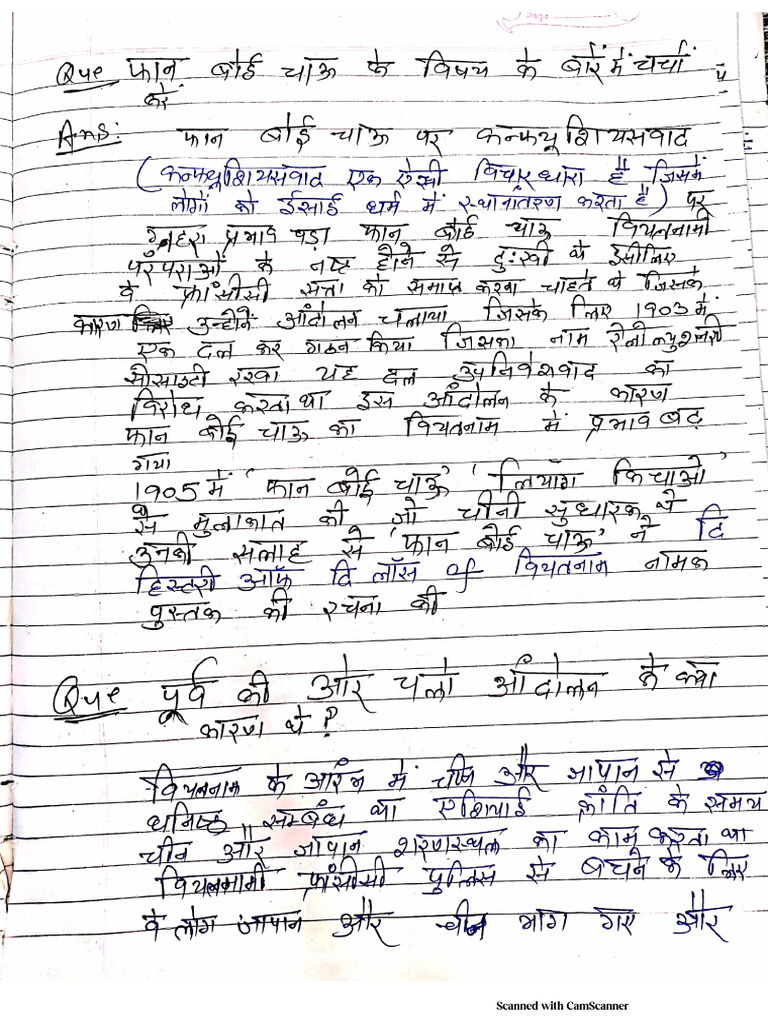 Page
Que फान बोई चाऊ के विषय के बारें में चर्चा
करें
Ans: फान बोई चाऊ पर कन्फ्यूशियसवाद
(कन्फ्यूशियसवाद एक ऐसी विचारधारा है जिसमें
लोगों को ईसाई धर्म में स्थानांतरण करता है) पर
गहरा प्रभाव पड़ा फान बोई चाऊ वियतनामी
परंपराओं के नष्ट होने से दुःखी थे इसीलिए
वे फ्रांसीसी सत्ता को समाप्त करवा चाहते थे जिसके
कारण उन्होंने आंदोलन चलाया जिसके लिए 1903 में
एक दल कर गठन किया जिसका नाम रेवोल्युशनरी
सोसाइटी रखा यह दल उपनिवेशवाद का
विरोध करता था इस आंदोलन के कारण
फान बोई चाऊ का वियतनाम में प्रभाव बढ़
गया
1905 में 'फान बोई चाऊ' 'लियांग किचाओ'
से मुलाकात की जो चीनी सुधारक थे
उनकी सलाह से 'फान बोई चाऊ' ने दि
हिस्टरी ऑफ दि लॉस of वियतनाम नामक
पुस्तक की रचना की
Que पूर्व की ओर चलो आंदोलन के क्या
कारण थे?
वियतनाम के आरंभ में चीन और जापान से
घनिष्ठ सम्बंध था एशियाई क्रांति के समय
चीन और जापान शरणस्थल का काम करता था
वियतनामी फ्रांसीसी पुलिस से बचने के लिए
वे लोग जापान और चीन भाग गए और
Scanned with CamScanner